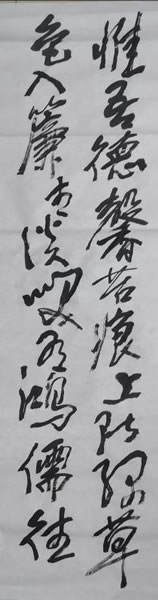 惟吾德馨苔痕上階緑草
色入簾青淡咲有鴻儒往